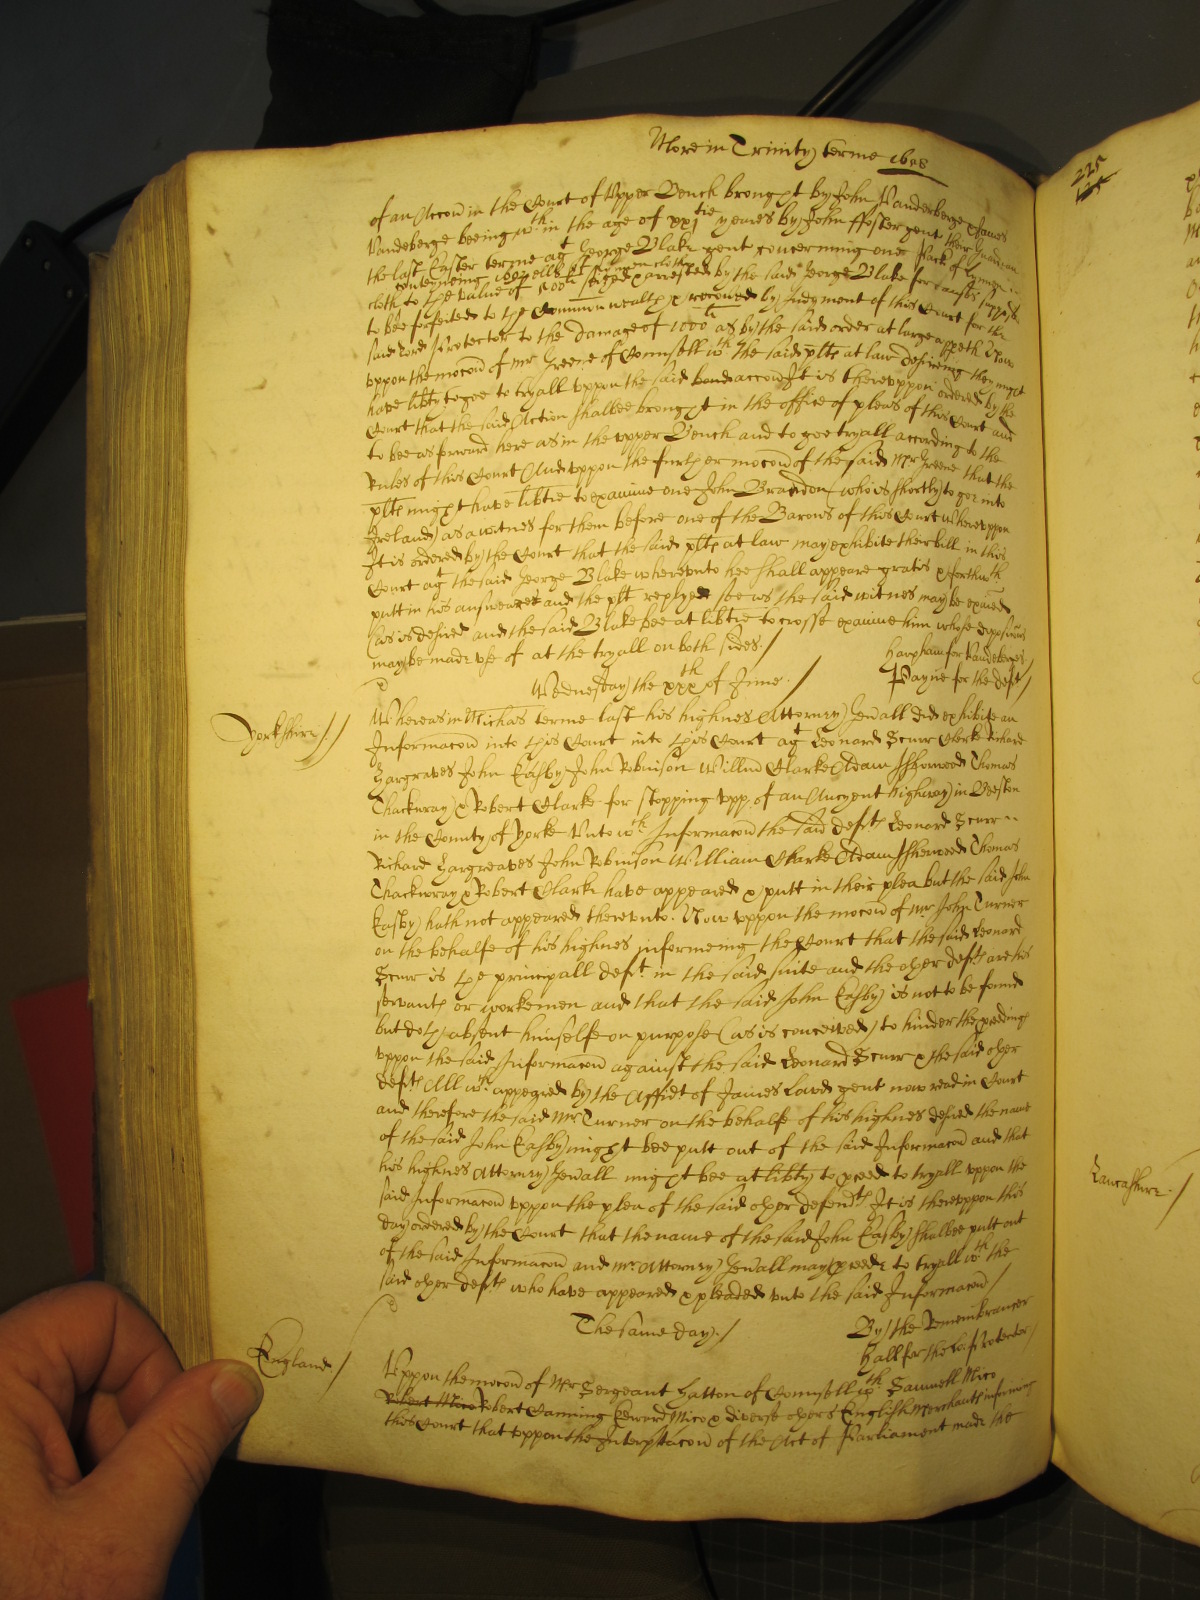 More in Trinity terme 1658
225
of an Accon in the Court of Upper Bench brought by John Vanderberge & James
Vandeberge beeing wth in the age of xxjtie yeares by John ffoster gent their Guardian
the last Easter terme agt George Blake gent concerning one Pack of Lynnen
cloth to the value of seized & arrested by the said George Blake for causes suppos
to bee forfeited to the Common wealth & recoued by Judgment of this Court for the
said Lord Protector to the damage of 1000li as by the said order at large appeth Now
vppon the mocon of mr Greene of Counsell wth the said plts at law desireing they might
have libty to goe to tryall vppon the said accon It is therevppon ordered by the
Court that the said Action shalbee brought in the office of pleas of this Court and
to bee as forward here as in the vpper Bench and to goe tryall according to the
Rules of this Court And vppon the further mocon of the said Mr Greene that the
plts might have libtie to examine one John Brandon (who is shortly to goe into
Ireland) as a witnes for them before one of the Barons of this Court wherevppon
It is ordered by the Court that the said plts at law may exhibite their bill in this
Court agt the said George Blake wherevnto hee shall appeare gratis & forthwth
putt in his answeare and the plt replye soe as the said witnes may be exaied
(as is desired and the said Blake bee at libtie to crosse examine him whose depositions
may be made vse of at the tryall on both sides./
Harpham for Vandeberge
Payne for the deft /
Wednesday the xxxth of June. /
Yorkshire. //
Whereas in Michas terme last his highnes Attorney Gen'all did exhibite an
Informacon into this Court into this Court agt Leonard Scurr Clerke Richard
Hargraves John Easby John Robinson Willm Clarke Adam Sherwood Thomas
Thackwray & Robert Clarke for stopping vpp of an Auncyent highway in Beeston
in the County of Yorke Vnto wch Informacon the said defts Leonard Scurr
Richard Hargreaves John Robinson William Clarke Adam Sherwood Thomas
Thackwray & Robert Clarke have appeared & putt in their plea but the said John
Easby hath not appeared therevnto. Now vppon the mocon of mr John Turner
on the behalfe of his highnes informeing the Court that the said Leonard
Scurr is the principall deft in the said suite and the other defts are his
servants or workemen and that the said John Easby is not to be found
but doth absent himselfe on purpose (as is conceived) to hinder the pceedings
vppon the said Informacon against the said Leonard Scurr & the said other
defts All wch appeared by the Affidt of James Lowd gent now read in Court
and therefore the said Mr Turner on the behalfe of his highnes desired the name
of the said John Easby might bee putt out of the said Informacon and that
his highnes Attorney Gen'all might bee at libty to pceed to tryall vppon the
said Informacon vppon the plea of the said other defendts It is therevppon this
day ordered by the Court that the name of the said John Easby shalbee putt out
of the said Informacon and mr Attorney Gen'all may pceede to tryall wth the
said other defts who have appeared & pleaded vnto the said Informacon /
By the Remembrancer
Hall for the Lo: Protector /
The same day. /
England. /
Vppon the mocon of Mr Sergeant Hatton of Counsell wth Samuell Mico
Robert Mico Robert Canning Edward Mico & diverse others English Merchants informing
this Court that vppon the Interptacon of the Act of Parliament made the
Lancashire. /